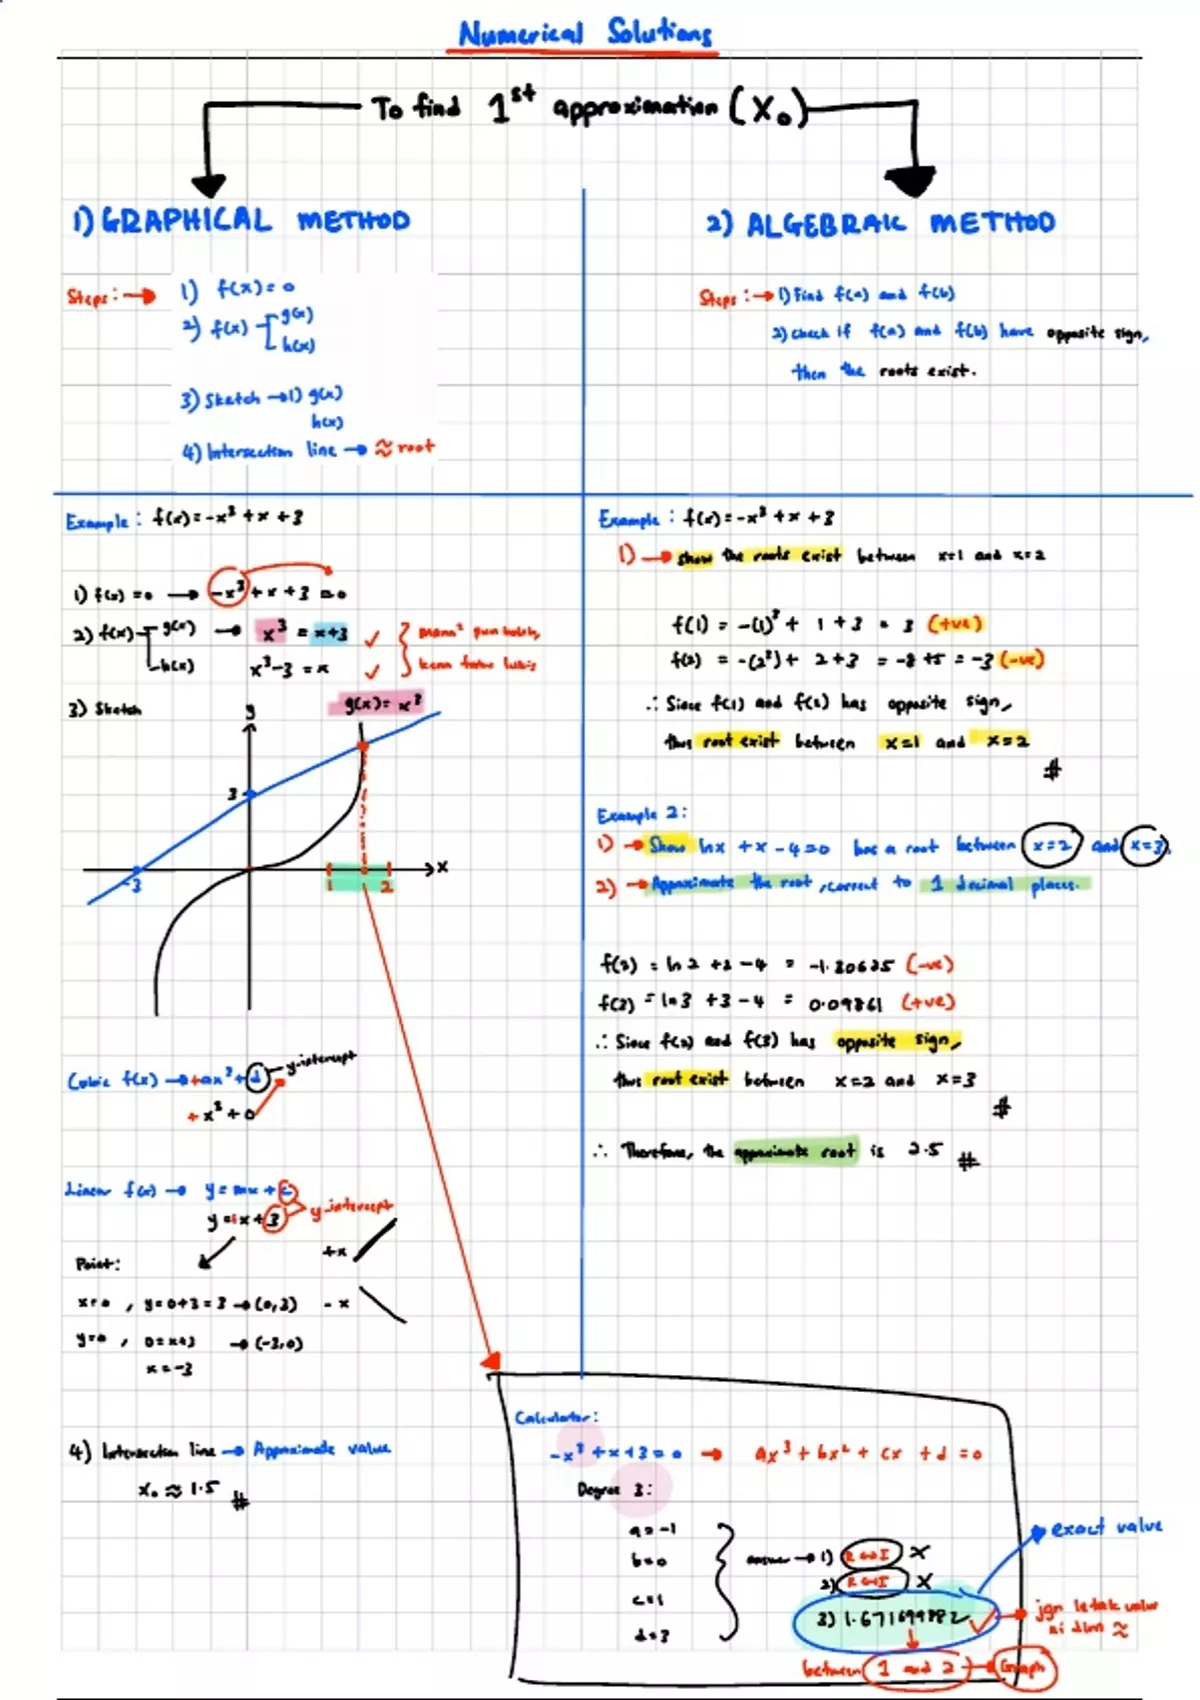 Numerical Solutions
To find 1st approximation (x₀)
1) GRAPHICAL METHOD
Steps: → 1) f(x) = 0
2) f(x) g(x)
h(x)
3) Sketch → 1) g(x)
h(x)
4) Intersection line → ≈ root
2) ALGEBRAIC METHOD
Steps: → 1) Find f(a) and f(b)
2) check if f(a) and f(b) have opposite sign,
then the roots exist.
Example: f(x) = -x³ + x + 3
1) f(x) = 0 → -x³ + x + 3 = 0
2) f(x) g(x) → x³ = x+3 ✓
h(x) x³-3 = x ✓
3) Sketch
g(x) = x³
y
3
-3
1
2
x
Cubic f(x) → +ax³ + d y-intercept
+ x³ + 0
Linear f(x) → y = mx + c
y = 1x + 3 y-intercept
+x
Point:
x=0, y=0+3=3 → (0,3) - x
y=0, 0=x+3 → (-3,0)
x=-3
4) Intersection line → Approximate value
x₀ ≈ 1.5 #
Example: f(x) = -x³ + x + 3
1) → show the roots exist between x=1 and x=2
f(1) = -(1)³ + 1 + 3 = 3 (+ve)
f(2) = -(2³) + 2+3 = -8 +5 = -3 (-ve)
∴ Since f(1) and f(2) has opposite sign,
thus root exist between x=1 and x=2
#
Example 2:
1) → Show lnx + x - 4 = 0 has a root between x=2 and x=3.
2) → Approximate the root, correct to 1 decimal places.
f(2) = ln 2 + 2 - 4 = -1.30685 (-ve)
f(3) = ln 3 + 3 - 4 = 0.09861 (+ve)
∴ Since f(2) and f(3) has opposite sign,
thus root exist between x=2 and x=3
#
∴ Therefore, the approximate root is 2.5 #
Calculator:
-x³ + x + 3 = 0 → ax³ + bx² + cx + d = 0
Degree 3:
a = -1
b = 0
c = 1
d = 3
answer → 1) R⇔I X
2) R⇔I X
3) 1.671699882 ✓
exact value
jgn letak value
ni dlm ≈
between 1 and 2 → Graph